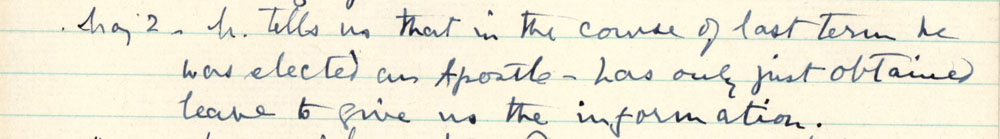 May 2 - M. tells us that in the course of last term he
was elected an Apostle - has only just obtained
leave to give us the information.